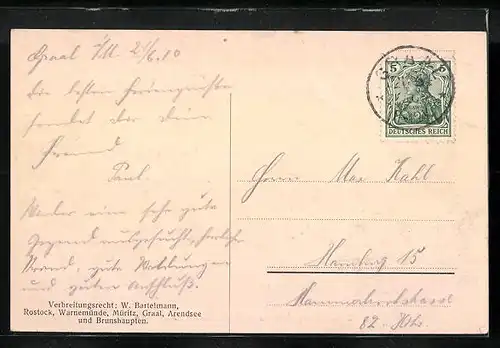 Graal i/M 21/6.10
Die besten Feriengrüße
sendet dir dein
Freund
Paul.
Wieder eine sehr gute
Gegend ausgesucht, herrlicher
Strand, gute Waldungen
und guten Anschluß.
Verbreitungsrecht: W. Bartelmann,
Rostock, Warnemünde, Müritz, Graal, Arendsee
und Brunshaupten.
5 5
GRAAL
DEUTSCHES REICH
Herrn Max Kahl
Hamburg 15
82